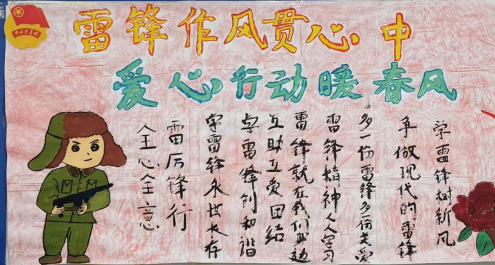 雷锋作风贯心中
爱心行动暖春风
学雷锋树新风
争做现代的雷锋
多一份雷锋多份关爱
雷锋精神人人学习
雷锋就在我们身边
互助互爱团结
学雷锋创和谐
学雷锋永世长存
雷厉锋行
全心全意